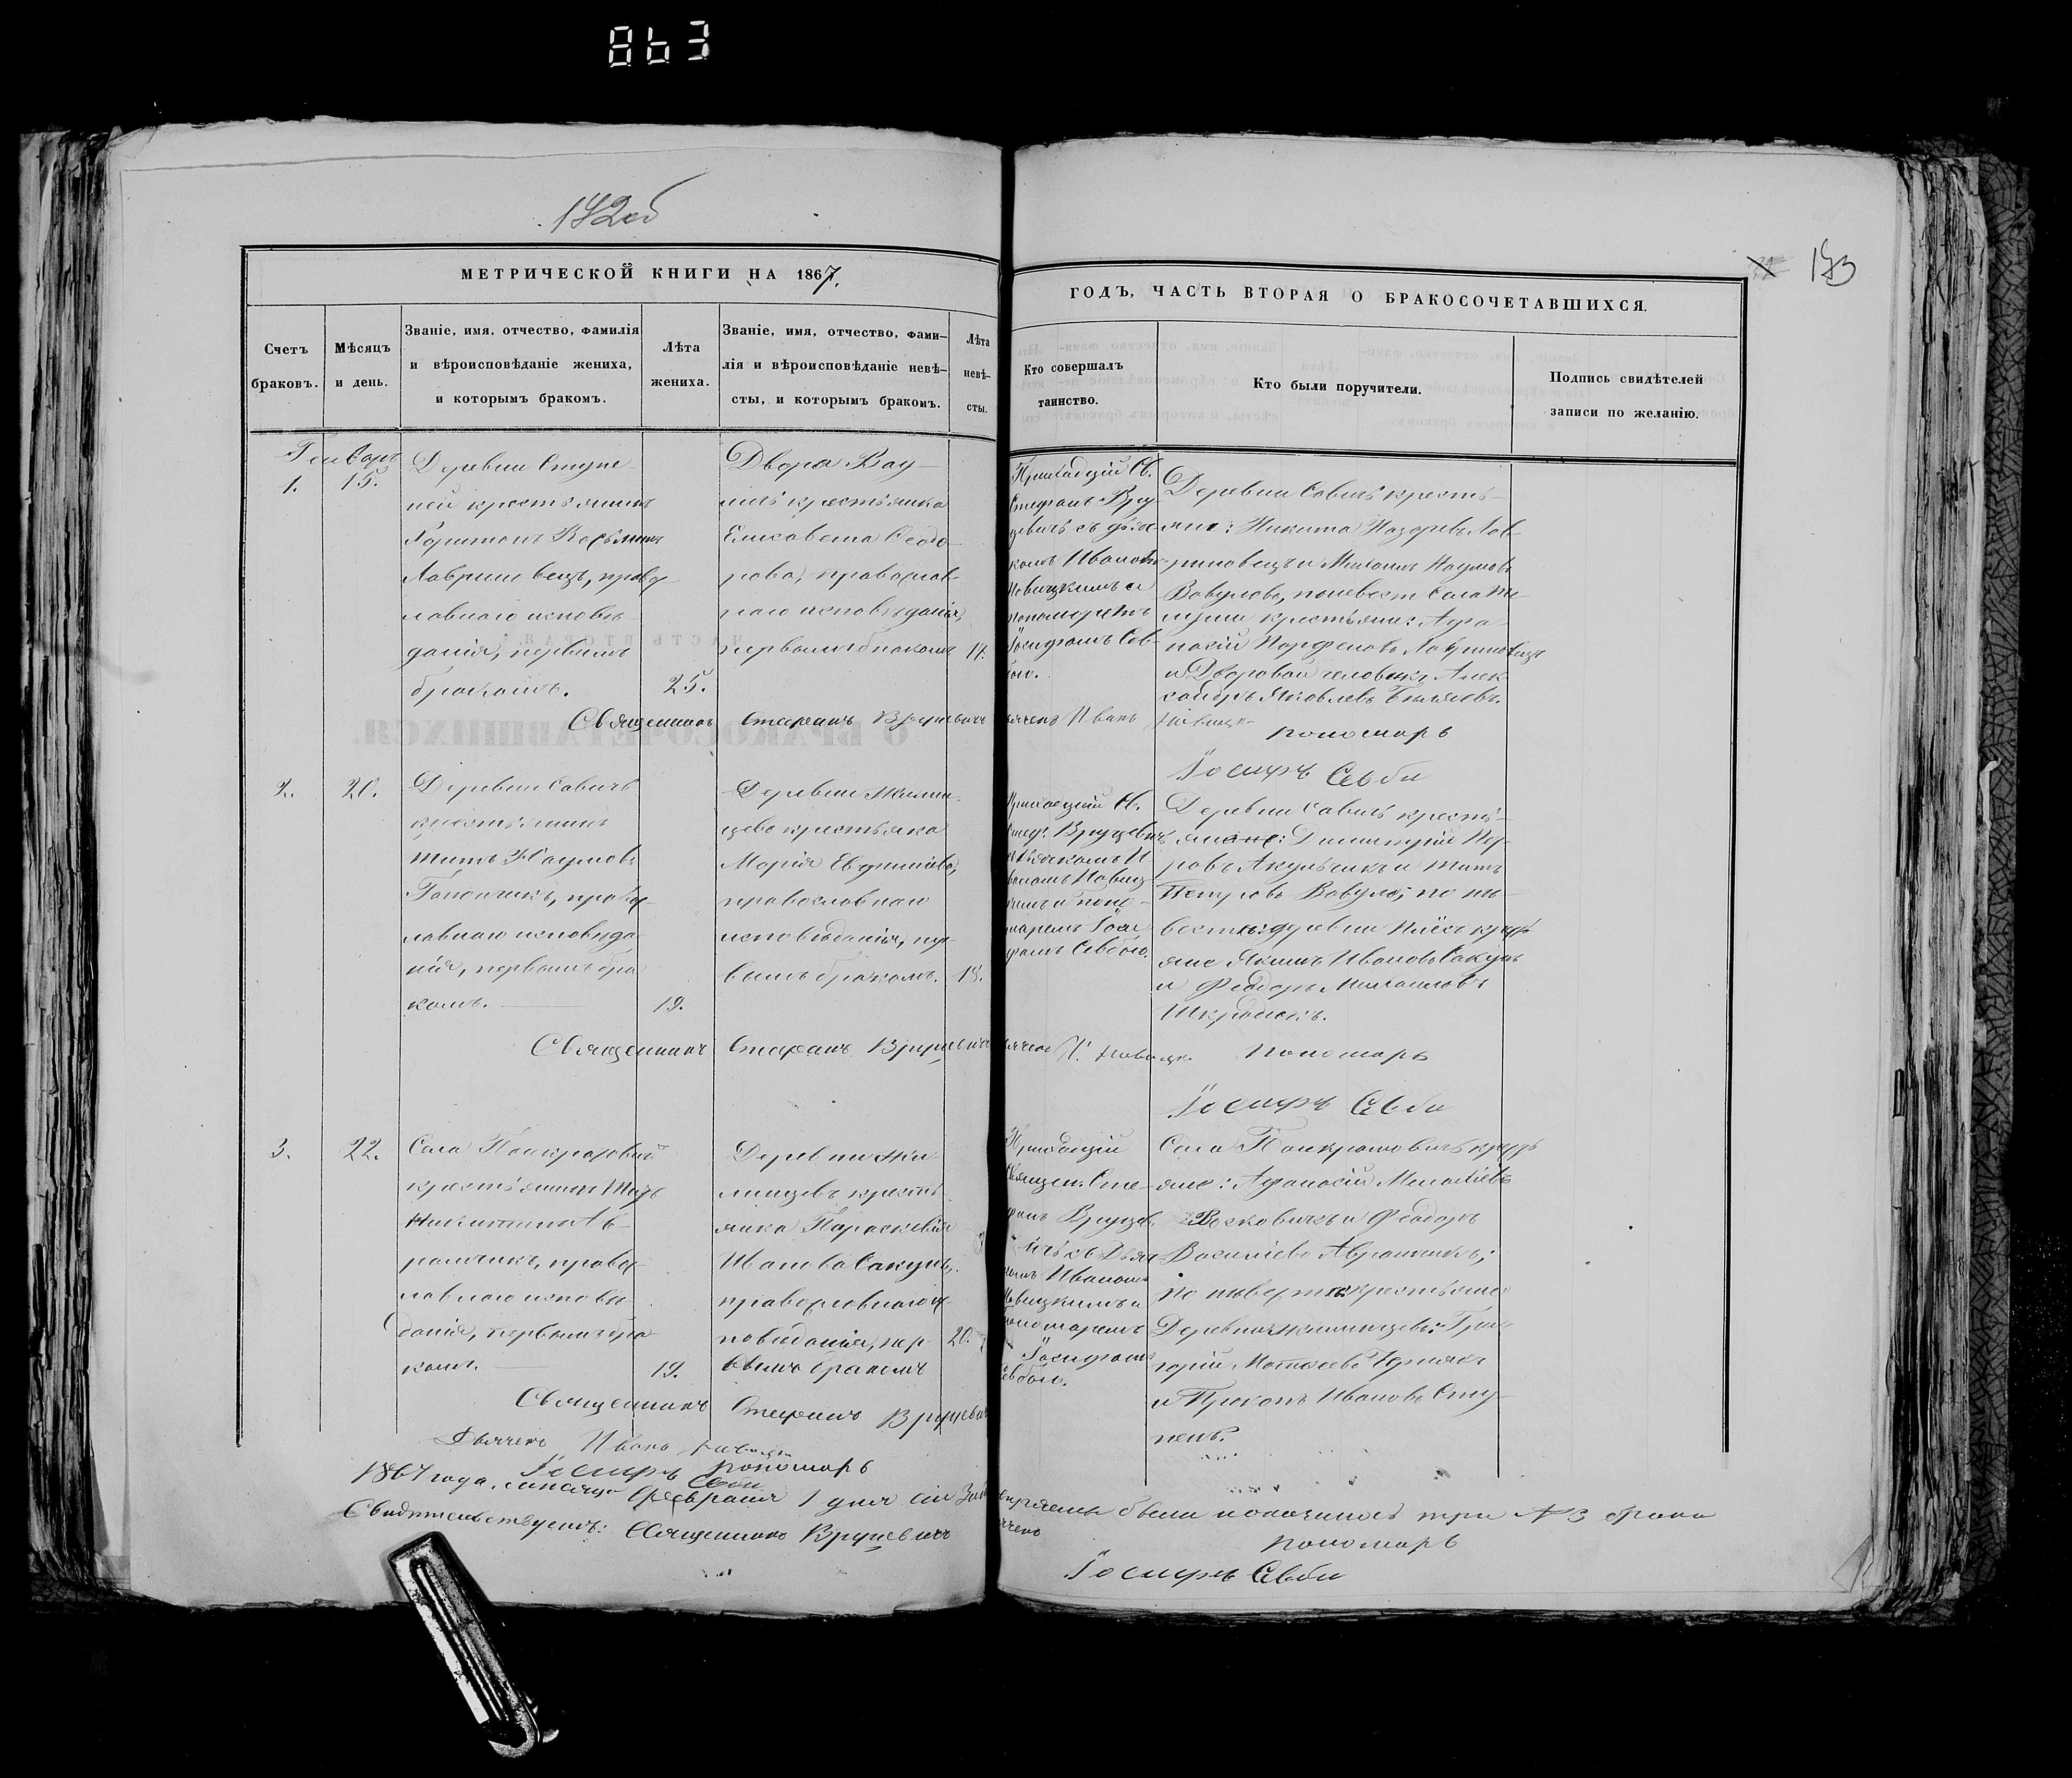 863
172об
173
МЕТРИЧЕСКОЙ КНИГИ НА 1867.
ГОДЪ, ЧАСТЬ ВТОРАЯ О БРАКОСОЧЕТАВШИХСЯ.
Счетъ
браковъ.
Мѣсяцъ
и день.
Званіе, имя, отчество, фамилія
и вѣроисповѣданіе жениха,
и которымъ бракомъ.
Лѣта
жениха.
Званіе, имя, отчество, фами-
лія и вѣроисповѣданіе невѣ-
сты, и которымъ бракомъ.
Лѣта
невѣ-
сты.
Кто совершалъ
таинство.
Кто были поручители.
Подпись свидѣтелей
записи по желанію.
Генварь
1.
15.
Деревни Ступе-
ней крестьянинъ
Харитонъ
Лавриновецъ, правос-
лавнаго исповѣ-
данія, первымъ
бракомъ.
25.
Двора
крестьянка
Елисавета Ѳеодо-
рова, православ-
наго исповѣданія,
первымъ бракомъ
Приходскій Св.
Стефанъ Вру
цевичъ съ дьяч-
комъ Иваномъ
Новицкимъ и
пономаремъ
Іосифомъ Сев-
бою.
Деревни Савичъ кресть-
яне: Никита Назаровъ Лав-
риновецъ и Михаилъ Наумовъ
Вавулово, по невѣсте Села
крестьяне: Афа-
насій Парфеновъ Лавриновецъ
и Дворовой человекъ Алек-
сандръ Яковлевъ
Священникъ Стефанъ Вруцевичъ Дьячекъ Иванъ Новицкій
пономарь
Іосифъ Севби
2.
20.
Деревни Савичъ
крестьянинъ
Титъ Наумовъ
правос-
лавнаго исповѣда-
нія, первымъ бра-
комъ.
19.
Деревни Жилин-
цево крестьянка
Марія Евфиміева,
православнаго
исповѣданія, пер-
вымъ бракомъ.
18.
Приходскій Св.
Стеф. Вруцевичъ
съ дьячкомъ И-
ваномъ Новиц-
кимъ и поно-
маремъ Іоси-
фомъ Севбою.
Деревни Савичъ кресть-
яне: Димитрій
ровъ Акулинъ и Титъ
Петровъ Вавуло; по не-
вестѣ: деревни
яне Якимъ Ивановъ Сакунъ
и Феодоръ Михаиловъ
Шкрабокъ.
Священникъ Стефанъ Вруцевичъ Дьячекъ И. Новицк.
Пономарь
Іосифъ Севби
3.
22.
Села Панкратовичъ
крестьянинъ
Никитинъ Ав-
рамчикъ, правос-
лавнаго исповѣ-
данія, первымъ бра-
комъ.
19.
Деревни Жи-
линцевъ кресть-
янка Параскевія
Иванова Сакунъ,
православнаго ис-
повѣданія, пер-
вымъ бракомъ
20.
Приходскій
Священ. Сте-
фанъ Вруцев-
ичъ съ Дьяч-
комъ Иваномъ
Новицкимъ и
пономаремъ
Іосифомъ
Севбою.
Села Панкратовичъ кресть-
яне: Афанасій
и Феодоръ
Василіевъ Аврамчикъ;
по невестѣ: крестьяне
Деревни Жилинцевъ: Гри-
горій Матвеевъ Чернякъ
и Прокопъ Ивановъ Сту-
пень.
Священникъ Стефанъ Вруцевичъ
Дьячекъ Иванъ Новицкій
Іосифъ Севби пономарь
1867 года, месяца февраля 1 дня сіи
были и оказалось три № 3 брака
Свидѣтельствуемъ: Священникъ Вруцевичъ
пономарь
Іосифъ Севби